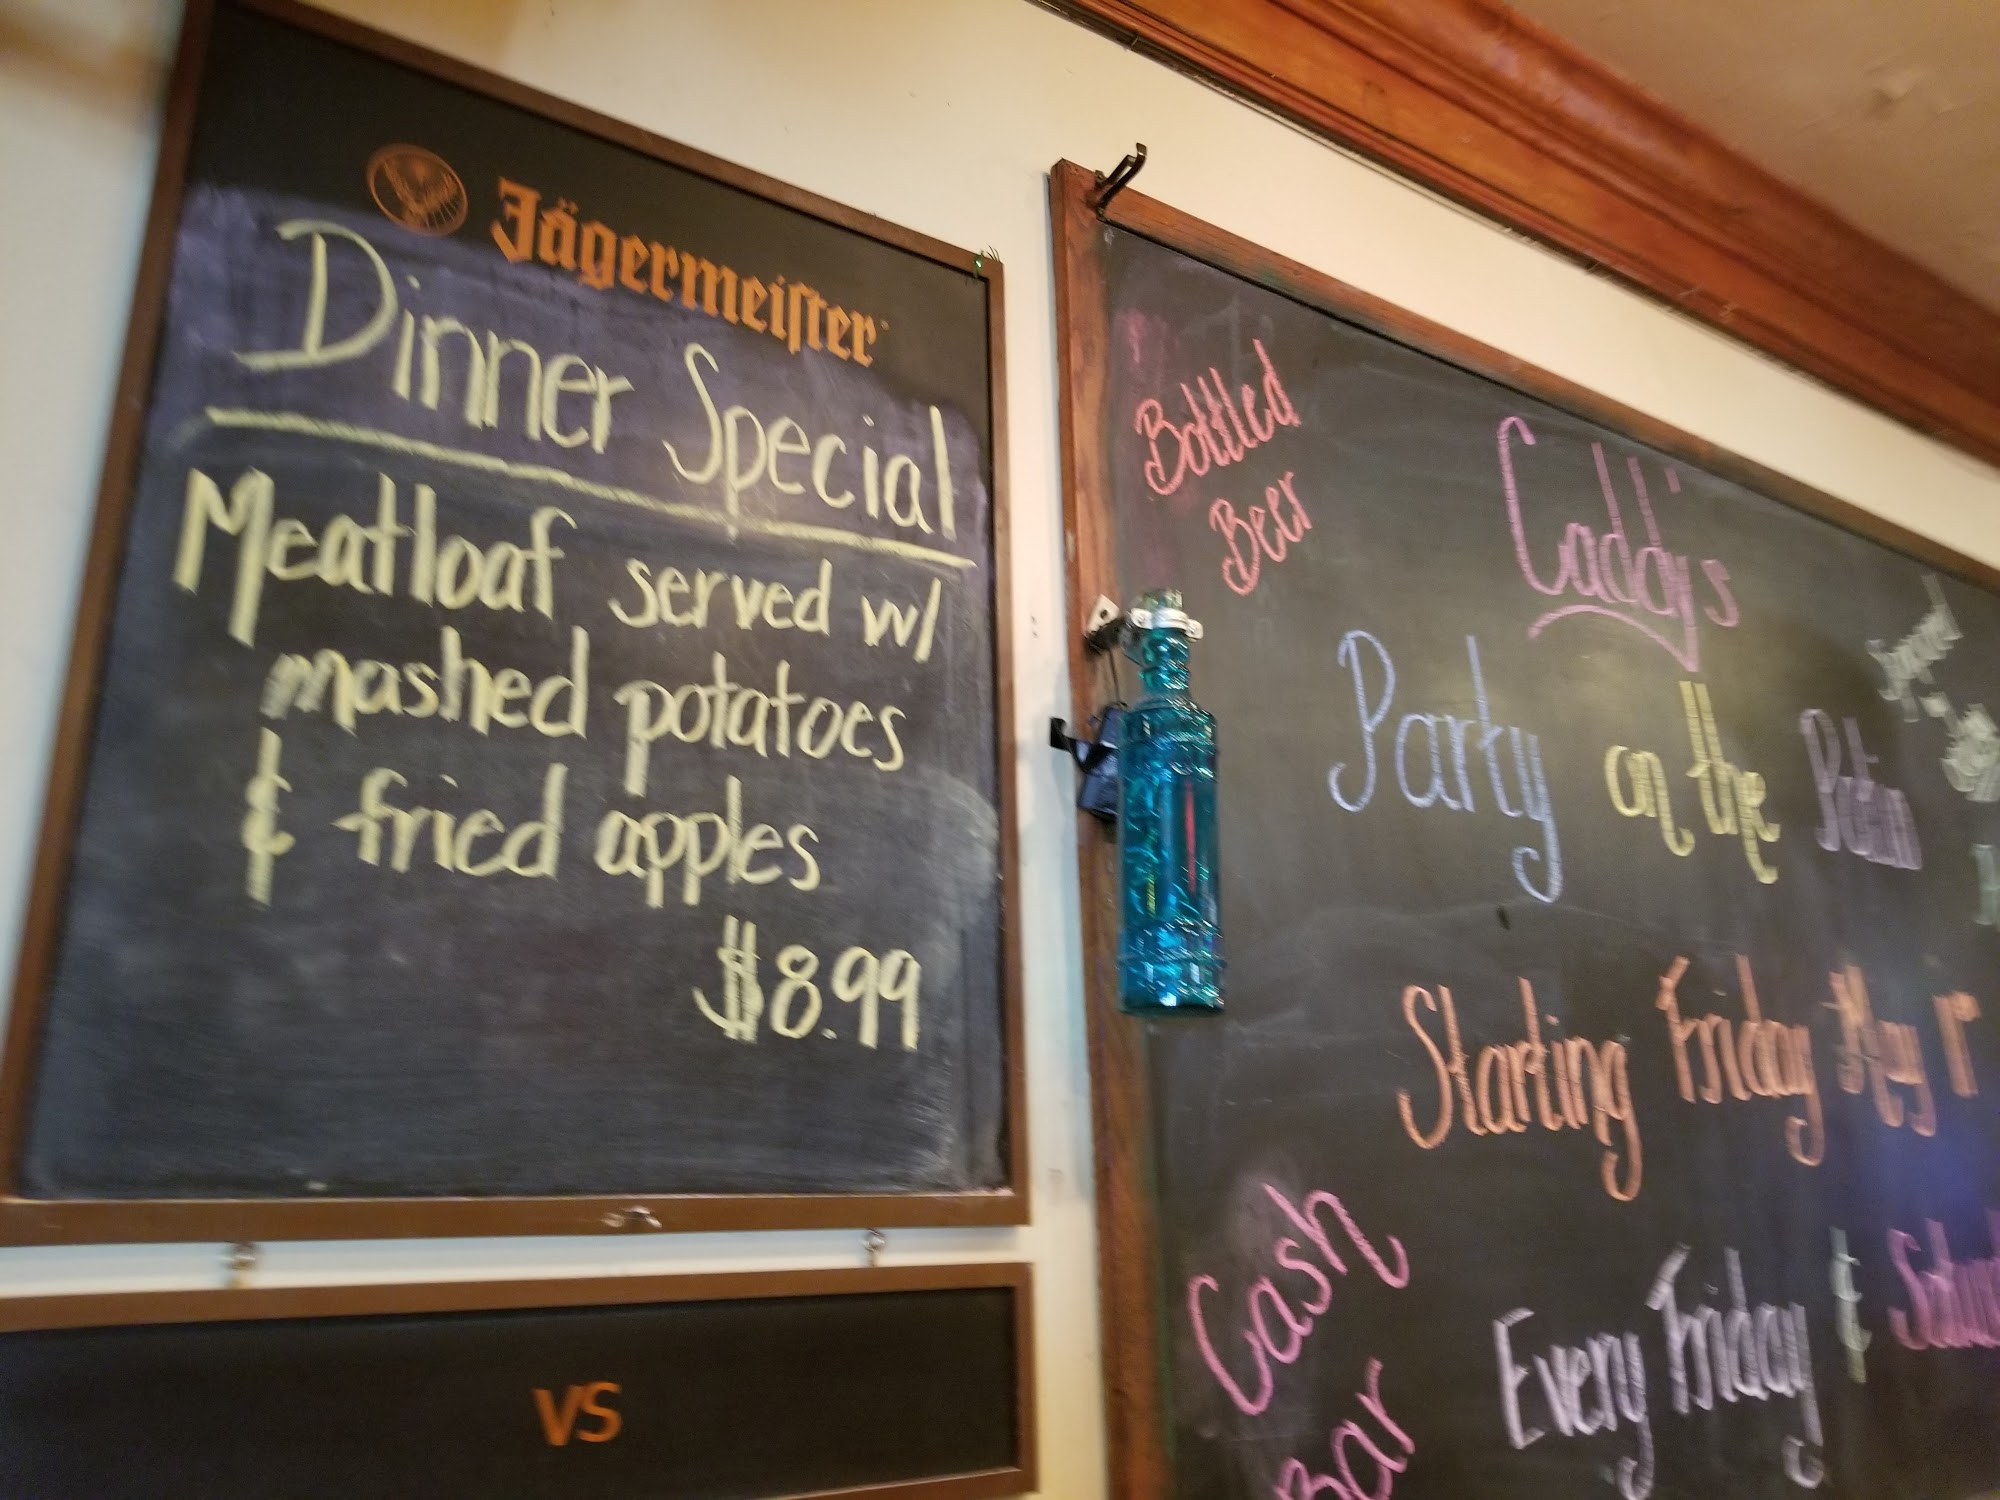 Jägermeister
Dinner Special
Meatloaf served w/
mashed potatoes
& fried apples
$8.99
VS
Bottled
Beer
Caddy's
Party on the Patio
Starting Friday May 1st
Every Friday &
Cash
Bar